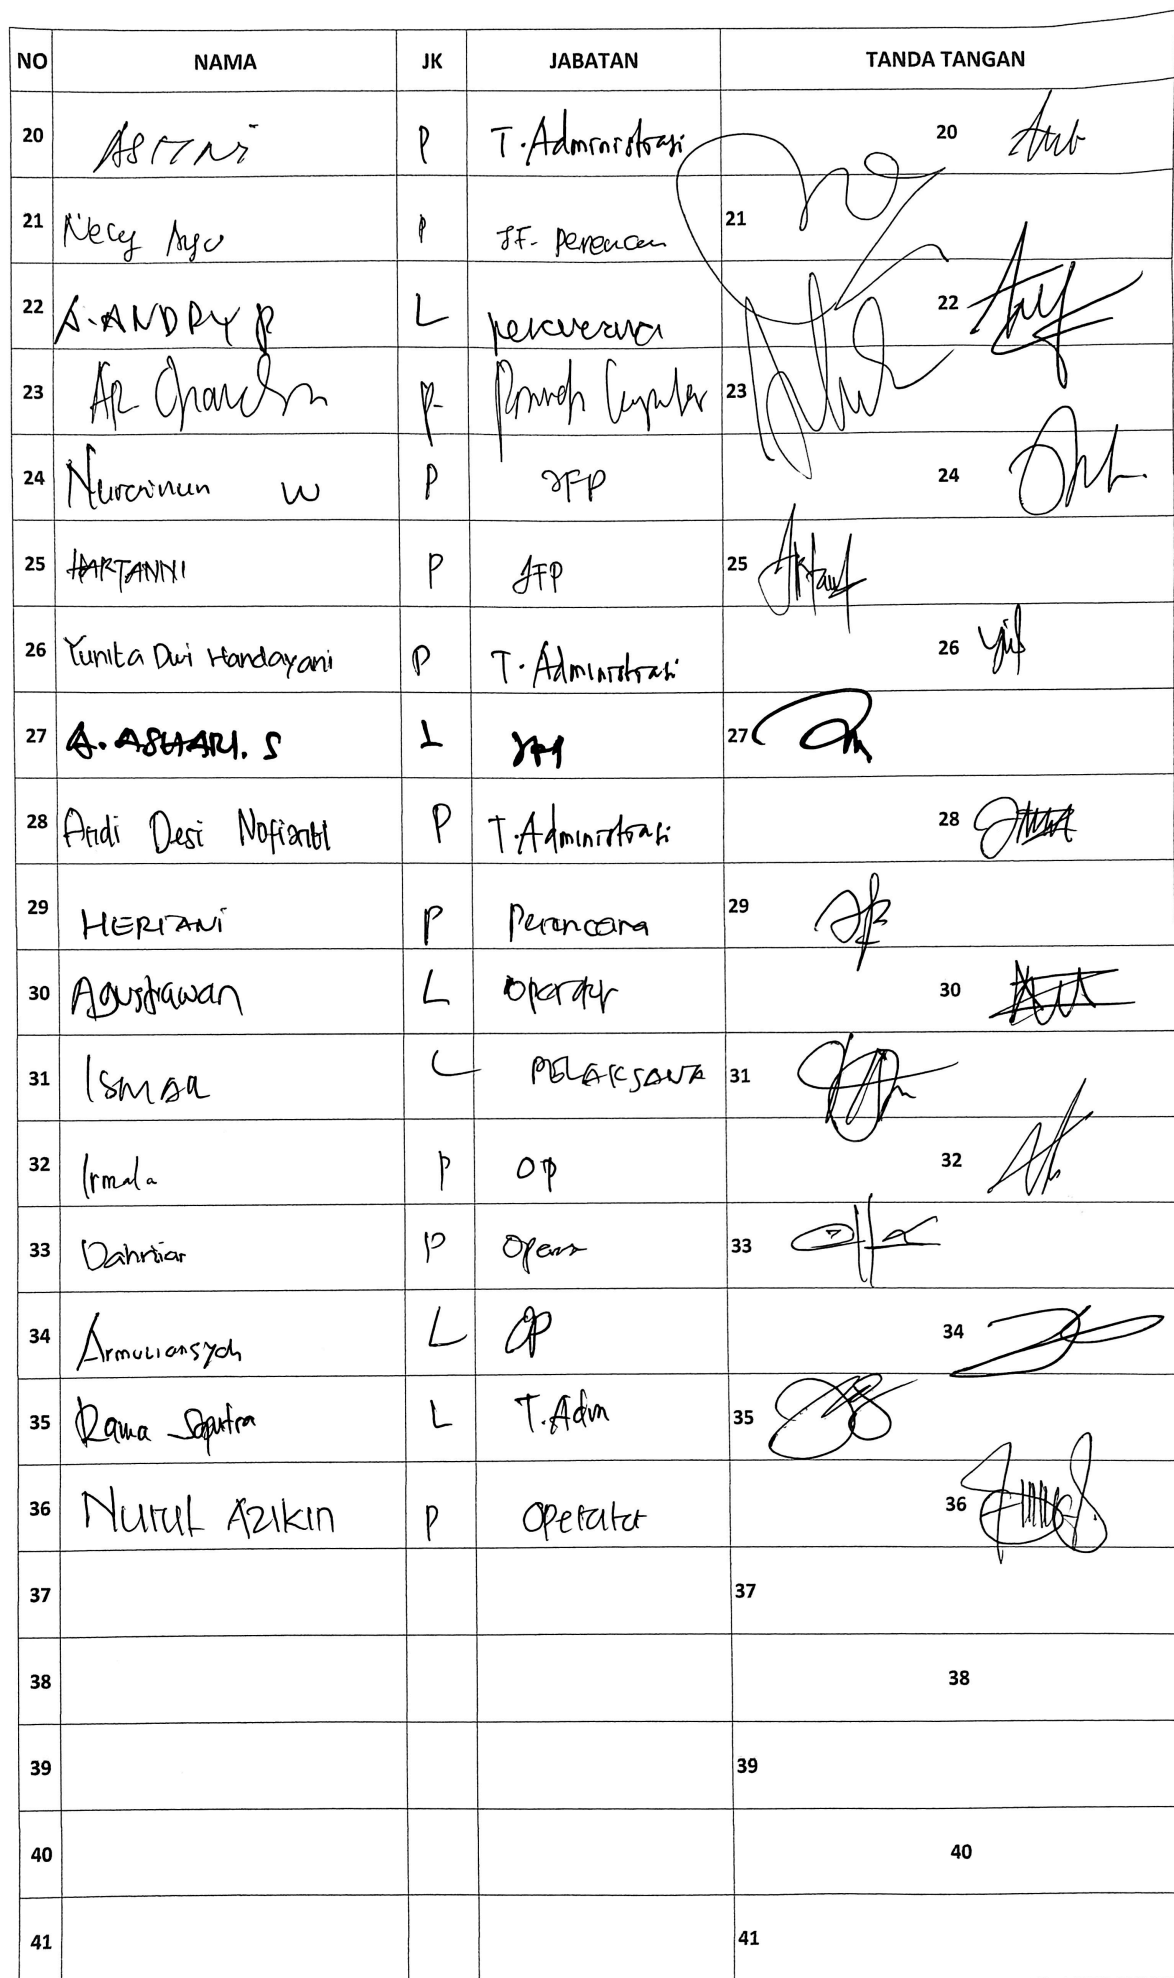 NO NAMA JK JABATAN TANDA TANGAN
20 ASMINI P T. Administrasi 20
21 Necy Ayu P JF. Perencan 21
22 A. ANDRY P L 22
23 P 23
24 Nurainun W P JFP 24
25 HARTANNI P JFP 25
26 Yunita Dwi Handayani P T. Administrasi 26
27 A. ASHARI. S L 27
28 Andi Desi Nofianti P T. Administrasi 28
29 HERIANI P Perencana 29
30 Agustiawan L Operator 30
31 L PELAKSANA 31
32 Irmala P OP 32
33 Dahniar P 33
34 Armuliansyah L OP 34
35 Rama Saputra L T. Adm 35
36 Nurul Azikin P Operator 36
37 37
38 38
39 39
40 40
41 41